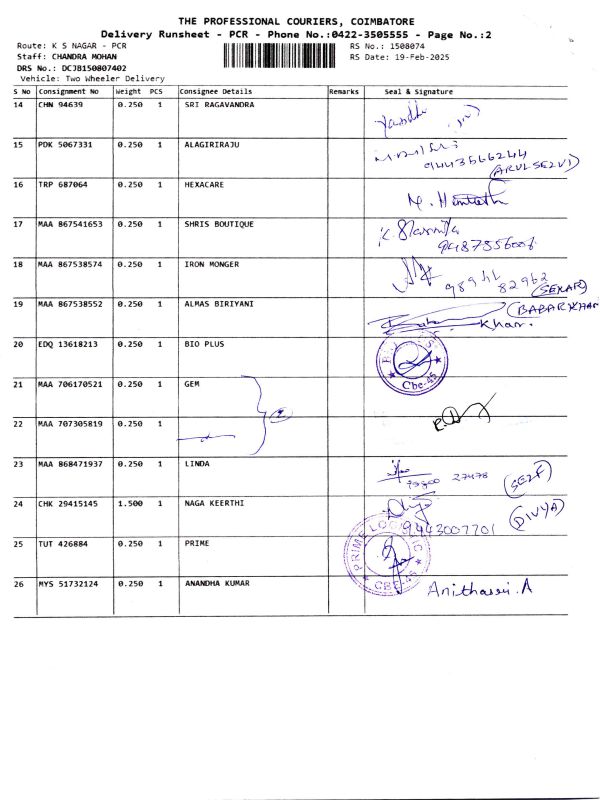 THE PROFESSIONAL COURIERS, COIMBATORE
Delivery Runsheet - PCR - Phone No.:0422-3505555 - Page No.:2
Route: K S NAGAR - PCR RS No.: 1508074
Staff: CHANDRA MOHAN RS Date: 19-Feb-2025
DRS No.: DCJB150807402
Vehicle: Two Wheeler Delivery
S No Consignment No Weight PCS Consignee Details Remarks Seal & Signature
14 CHN 94639 0.250 1 SRI RAGAVANDRA
15 PDK 5067331 0.250 1 ALAGIRIRAJU
9443566244
(ARULSELVI)
16 TRP 687064 0.250 1 HEXACARE
17 MAA 867541653 0.250 1 SHRIS BOUTIQUE
9487556006
18 MAA 867538574 0.250 1 IRON MONGER
82962 (SEKAR)
19 MAA 867538552 0.250 1 ALMAS BIRIYANI (BABAR KHAN
Khan.
20 EDQ 13618213 0.250 1 BIO PLUS
Cbe-45
21 MAA 706170521 0.250 1 GEM
22 MAA 707305819 0.250 1
23 MAA 868471937 0.250 1 LINDA
27478 (SELF)
24 CHK 29415145 1.500 1 NAGA KEERTHI
9443007701 (DIVYA)
25 TUT 426884 0.250 1 PRIME PRIME LOGISTIC
CBE-45
26 MYS 51732124 0.250 1 ANANDHA KUMAR